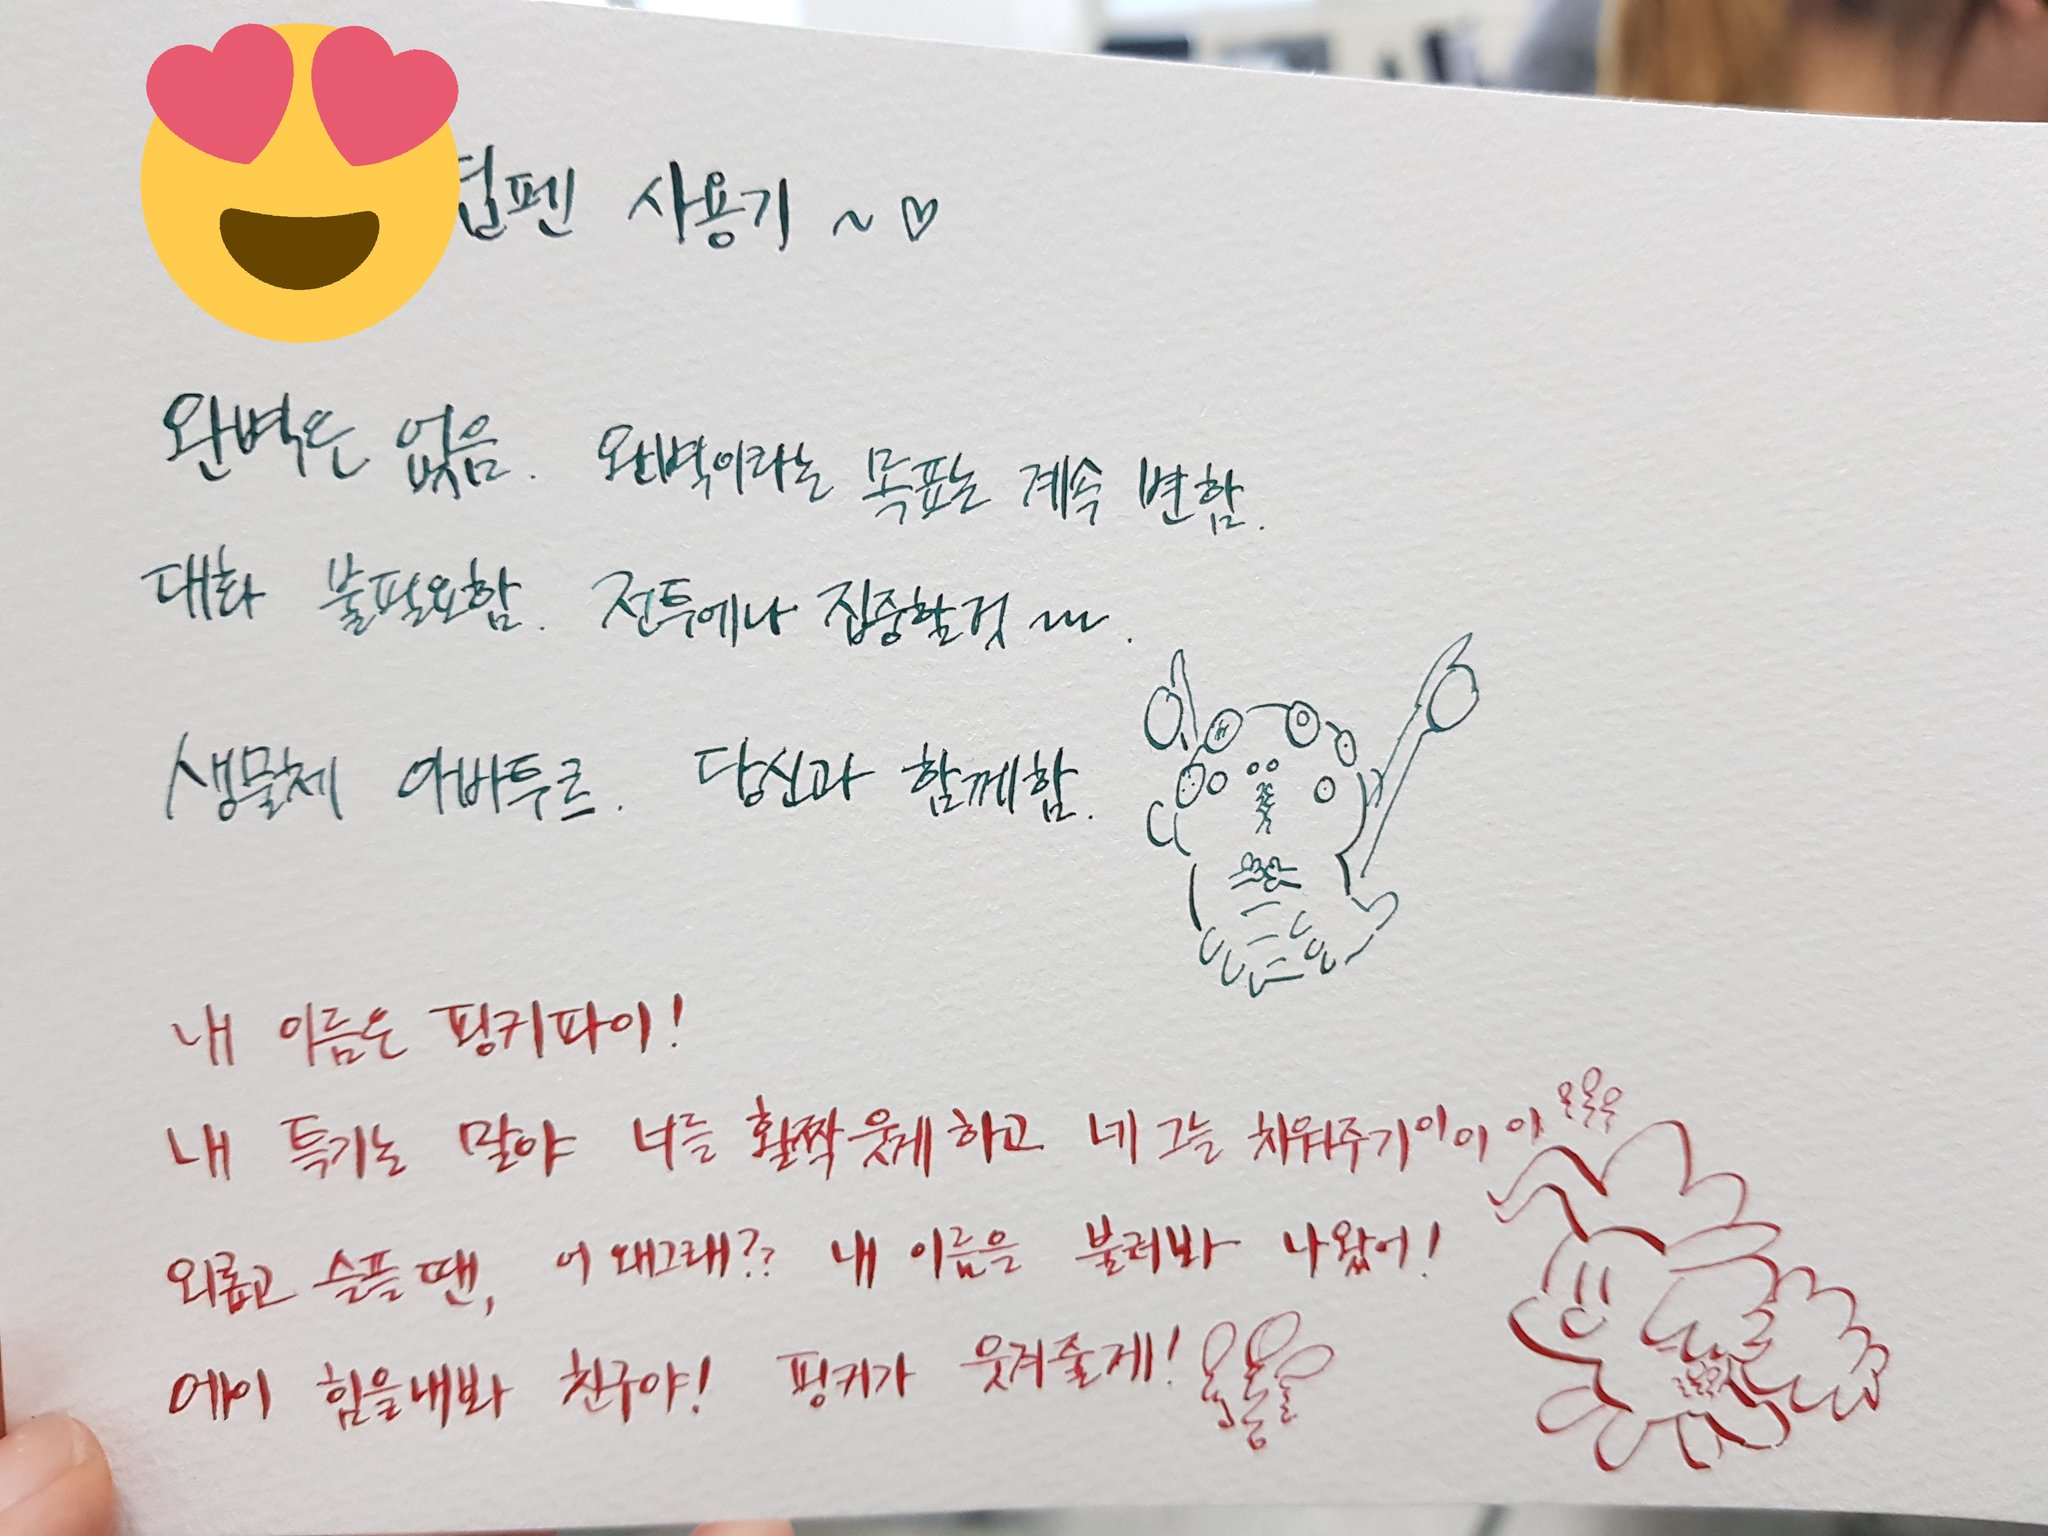 펜 사용기 ~ ♡
완벽은 없음. 완벽이라는 목표는 계속 변함.
대화 불필요함. 전투에나 집중할것 ~.
생물체 아바투르. 당신과 함께함.
내 이름은 핑키파이!
내 특기는 말야 너를 활짝 웃게 하고 네 그늘 치워주기이이이
외롭고 슬플 땐, 어 왜그래?? 내 이름은 불러봐 나왔어!
에이 힘을내봐 친구야! 핑키가 웃겨줄게!